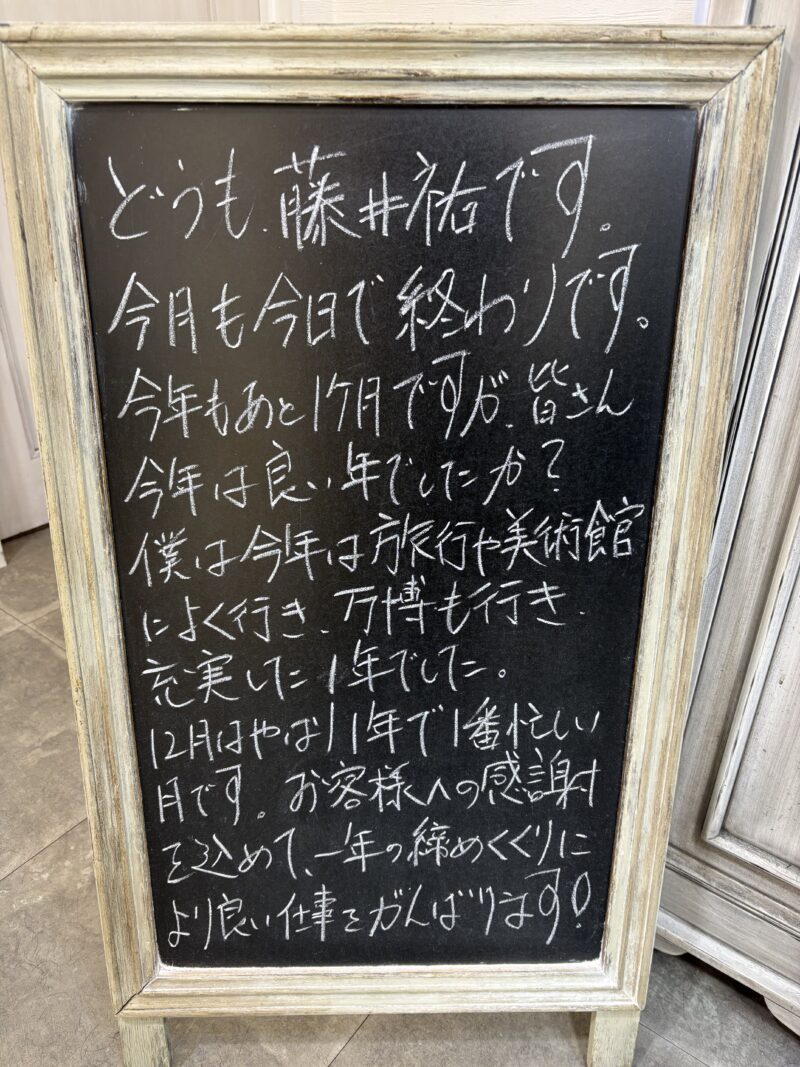 どうも、藤井祐です。
今月も今日で終わりです。
今年もあと1ケ月ですが、皆さん
今年は良い年でしたか？
僕は今年は旅行や美術館
によく行き、万博も行き、
充実した1年でした。
12月はやはり1年で1番忙しい
月です。お客様への感謝
を込めて、一年の締めくくりに
より良い仕事をがんばります！